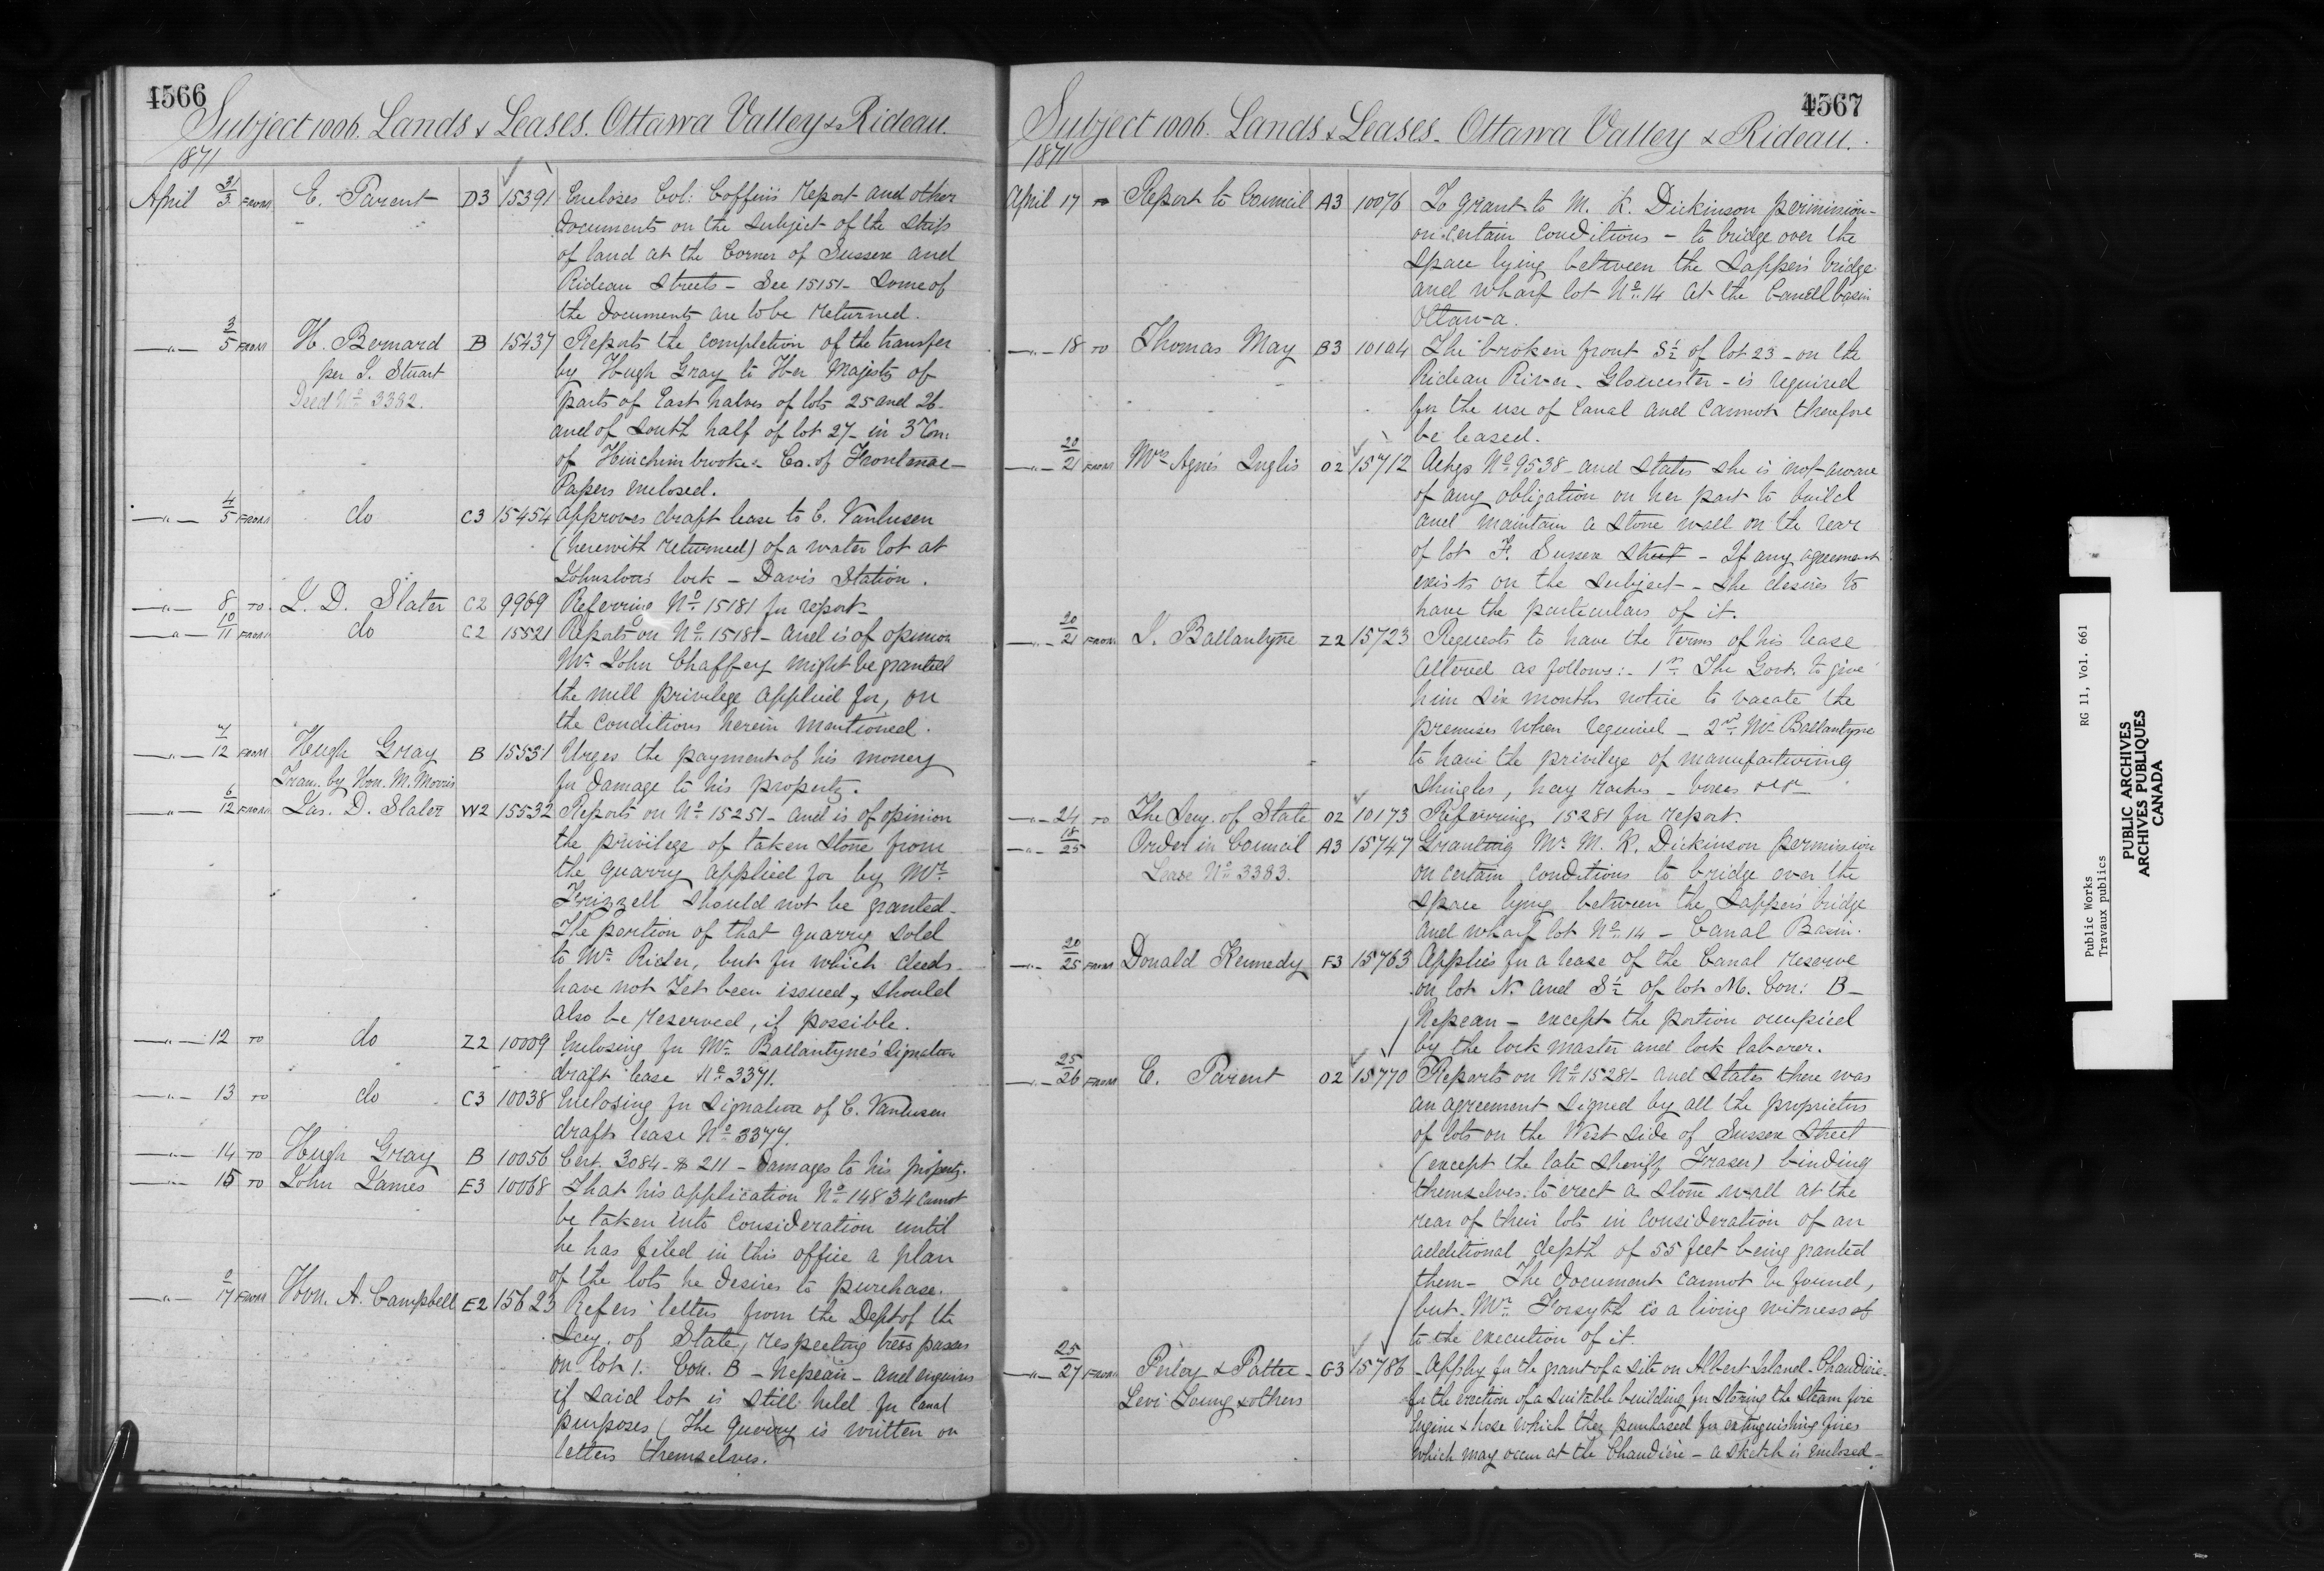 4566
Subject 1006. Lands & Leases. Ottawa Valley & Rideau.
1871
April 31/3 FROM E. Parent D3 15391 Encloses Col: Coffin's report and other
documents on the subject of the strip
of land at the Corner of Sussex and
Rideau Streets – See 15151 – Some of
the documents are to be returned.
—"— 3/5 FROM H. Bernard B 15437 Reports the completion of the transfer
per S. Stuart by Hugh Gray to Her Majesty of
Deed No 3382. parts of East halves of lots 25 and 26
and of South half of lot 27 – in 3 Con.
of Hinchinbrooke – Co. of Frontenac –
Papers enclosed.
—"— 4/5 FROM do C3 15454 Approves draft lease to C. Vanlusen
(herewith returned) of a water lot at
Johnston's lock – Davis Station.
—"— 8 TO L. D. Slater C2 9969 Referring No 15181 for report
—"— 10/11 FROM do C2 15521 Reports on No 15181 – and is of opinion
Mr John Chaffey might be granted
the mill privilege applied for, on
the conditions herein mentioned.
—"— 7/12 FROM Hugh Gray B 15531 Urges the payment of his money
Tran. by Hon. M. Morris for damage to his property.
—"— 6/12 FROM Jas. D. Slater W2 15532 Reports on No 15251 – and is of opinion
the privilege of taken stone from
the quarry applied for by Mr
Frizzell should not be granted –
The portion of that quarry sold
to Mr Rider, but for which deeds
have not yet been issued, should
also be reserved, if possible.
—"— 12 TO do Z2 10009 Enclosing for Mr Ballantyne's signature
draft lease No 3371.
—"— 13 TO do C3 10038 Enclosing for signature of C. Vanlusen
draft lease No 3377.
—"— 14 TO Hugh Gray B 10056 Cert. 3084 – $ 211 – damages to his property.
—"— 15 TO John James E3 10068 That his application No 14834 cannot
be taken into consideration until
he has filed in this office a plan
of the lots he desires to purchase.
—"— 9/17 FROM Hon. A. Campbell E2 15623 Refers letters from the Dept of the
Secy. of State, respecting tresspasses
on lot 1. Con. B – Nepean – and enquires
if said lot is still held for Canal
purposes (The query is written on
letters themselves.
4567
Subject 1006. Lands & Leases – Ottawa Valley & Rideau.
1871
April 17 TO Report to Council A3 10076 To grant to M. K. Dickinson permission –
on certain conditions – to bridge over the
space lying between the Sapper's bridge
and wharf lot No 14 at the Canal basin
Ottawa.
—"— 18 TO Thomas May B3 10104 The broken front S½ of lot 23 – on the
Rideau River – Gloucester – is required
for the use of Canal and cannot therefore
be leased.
—"— 20/21 FROM Mrs Agnes Inglis O2 15712 Ackgs No 9538 – and states she is not aware
of any obligation on her part to build
and maintain a stone wall on the rear
of lot F. Sussex Street – If any agreement
exists on the subject – she desires to
have the particulars of it.
—"— 20/21 FROM J. Ballantyne Z2 15723 Requests to have the terms of his lease
altered as follows: – 1st The Govt. to give
him six months notice to vacate the
premises when required – 2nd Mr Ballantyne
to have the privilege of manufacturing
shingles, hay racks – boxes &c &c
—"— 24 TO The Secy. of State O2 10173 Referring 15281 for report.
—"— 18/25 Order in Council A3 15747 Granting Mr M. K. Dickinson permission
Lease No 3383. on certain conditions to bridge over the
space lying between the Sapper's bridge
and wharf lot No 14 – Canal Basin.
—"— 20/25 FROM Donald Kennedy F3 15763 Applies for a lease of the Canal reserve
on lot N. and S½ of lot M. Con: B –
Nepean – except the portion occupied
by the lock master and lock laborer.
—"— 25/26 FROM E. Parent O2 15770 Reports on No 15281 – and states there was
an agreement signed by all the proprietors
of lots on the West side of Sussex Street
(except the late Sheriff Fraser) binding
themselves to erect a stone wall at the
rear of their lots in consideration of an
additional depth of 55 feet being granted
them – The document cannot be found,
but Mr Forsyth is a living witness of
to the execution of it.
—"— 25/27 FROM Perley & Pattee – G3 15786 Apply for the grant of a site on Albert Island – Chaudière –
Levi Young & others for the erection of a suitable building for storing the steam fire
Engine & hose which they purchased for extinguishing fires
which may occur at the Chaudière – a sketch is enclosed –
Public Works RG 11, Vol. 661
Travaux publics
PUBLIC ARCHIVES
ARCHIVES PUBLIQUES
CANADA